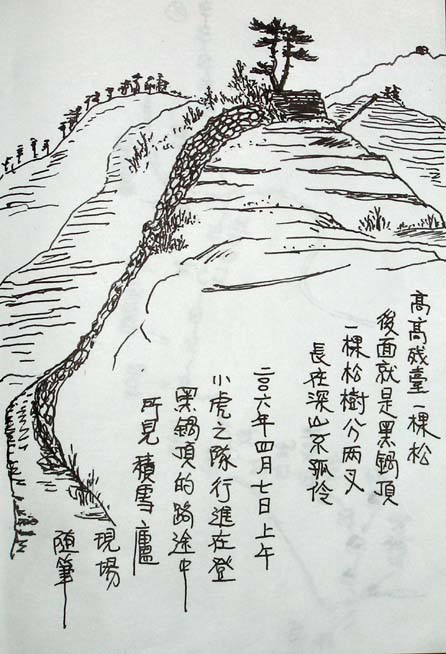 高高残臺一棵松
後面就是黑鍋頂
一棵松樹分兩叉
長在深山不孤伶
二〇〇六年四月七日上午
小虎之隊行進在登
黑鍋頂的路途中
所見 積雪廬
現場
隨筆